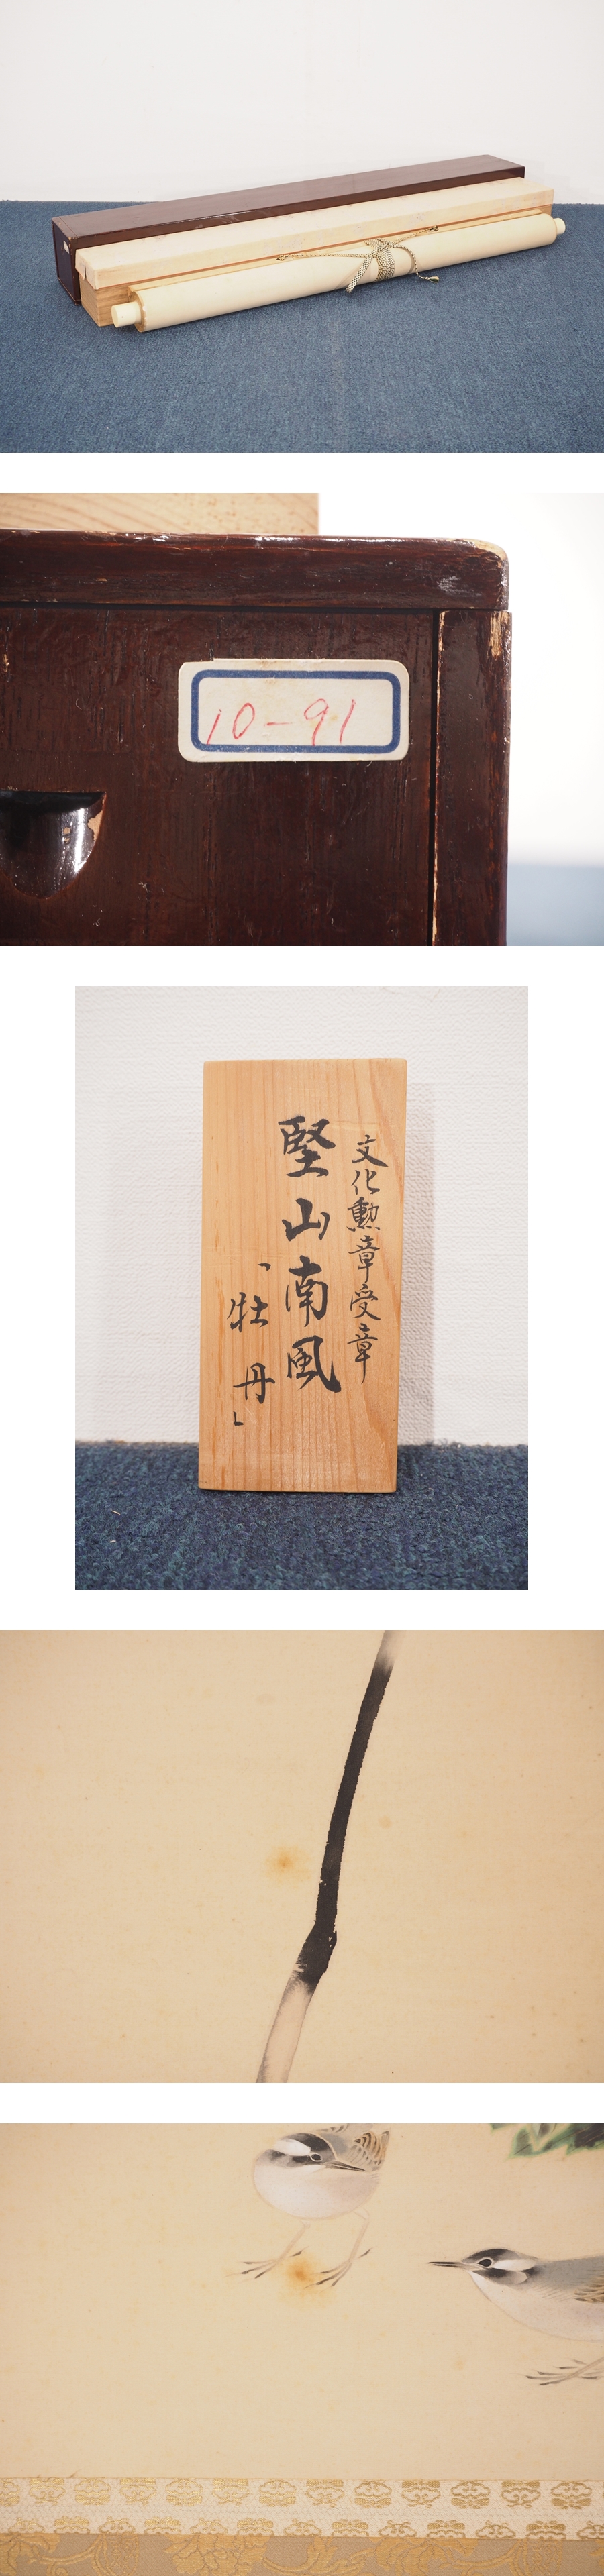 10-91
文化勲章受章
堅山南風
「牡丹」